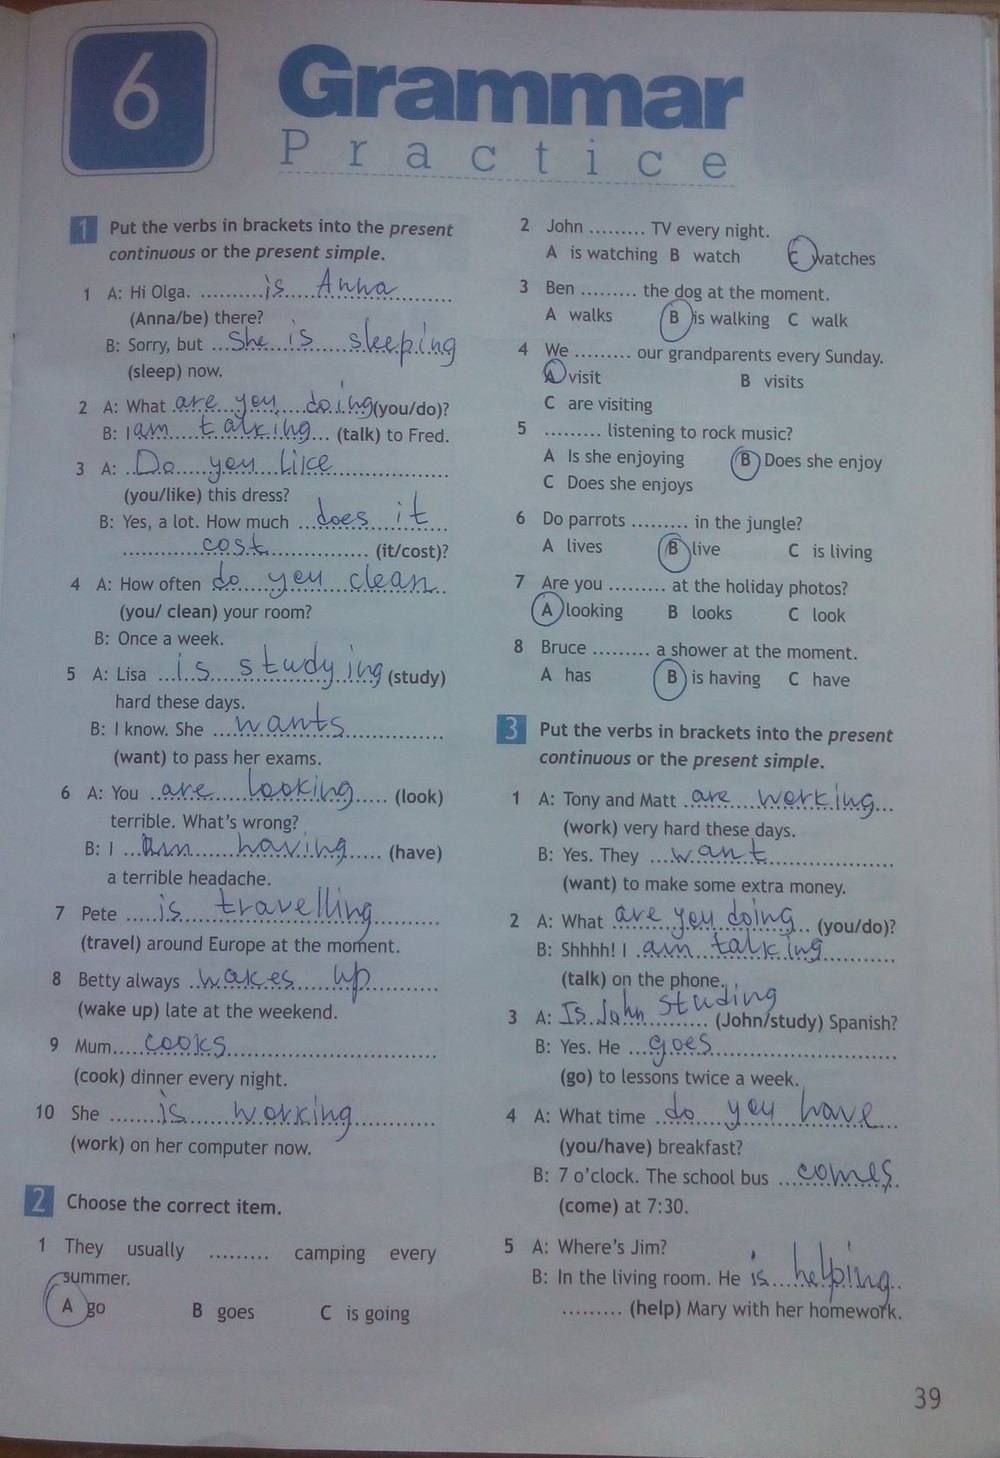 6
Grammar
Practice
1 Put the verbs in brackets into the present
continuous or the present simple.
1 A: Hi Olga. ..........is Anna..........
(Anna/be) there?
B: Sorry, but ...she is sleeping
(sleep) now.
2 A: What are you doing (you/do)?
B: I am talking... (talk) to Fred.
3 A: ..Do you like..........
(you/like) this dress?
B: Yes, a lot. How much ...does it
..........cost.......... (it/cost)?
4 A: How often do you clean..
(you/ clean) your room?
B: Once a week.
5 A: Lisa ...is studying (study)
hard these days.
B: I know. She ...wants..........
(want) to pass her exams.
6 A: You ...are looking..... (look)
terrible. What's wrong?
B: I ...am having..... (have)
a terrible headache.
7 Pete .....is travelling..........
(travel) around Europe at the moment.
8 Betty always ..wakes up..........
(wake up) late at the weekend.
9 Mum.....cooks..........
(cook) dinner every night.
10 She .......is working..........
(work) on her computer now.
2 Choose the correct item.
1 They usually ......... camping every
summer.
A go B goes C is going
2 John ......... TV every night.
A is watching B watch C watches
3 Ben ......... the dog at the moment.
A walks B is walking C walk
4 We ......... our grandparents every Sunday.
A visit B visits
C are visiting
5 ......... listening to rock music?
A Is she enjoying B Does she enjoy
C Does she enjoys
6 Do parrots ......... in the jungle?
A lives B live C is living
7 Are you ......... at the holiday photos?
A looking B looks C look
8 Bruce ......... a shower at the moment.
A has B is having C have
3 Put the verbs in brackets into the present
continuous or the present simple.
1 A: Tony and Matt ..are working...
(work) very hard these days.
B: Yes. They ...want..........
(want) to make some extra money.
2 A: What are you doing.. (you/do)?
B: Shhhh! I .am talking..........
(talk) on the phone.
3 A: Is John studing (John/study) Spanish?
B: Yes. He ...goes..........
(go) to lessons twice a week.
4 A: What time ..do you have...
(you/have) breakfast?
B: 7 o'clock. The school bus ...comes.
(come) at 7:30.
5 A: Where's Jim?
B: In the living room. He is helping..
......... (help) Mary with her homework.
39